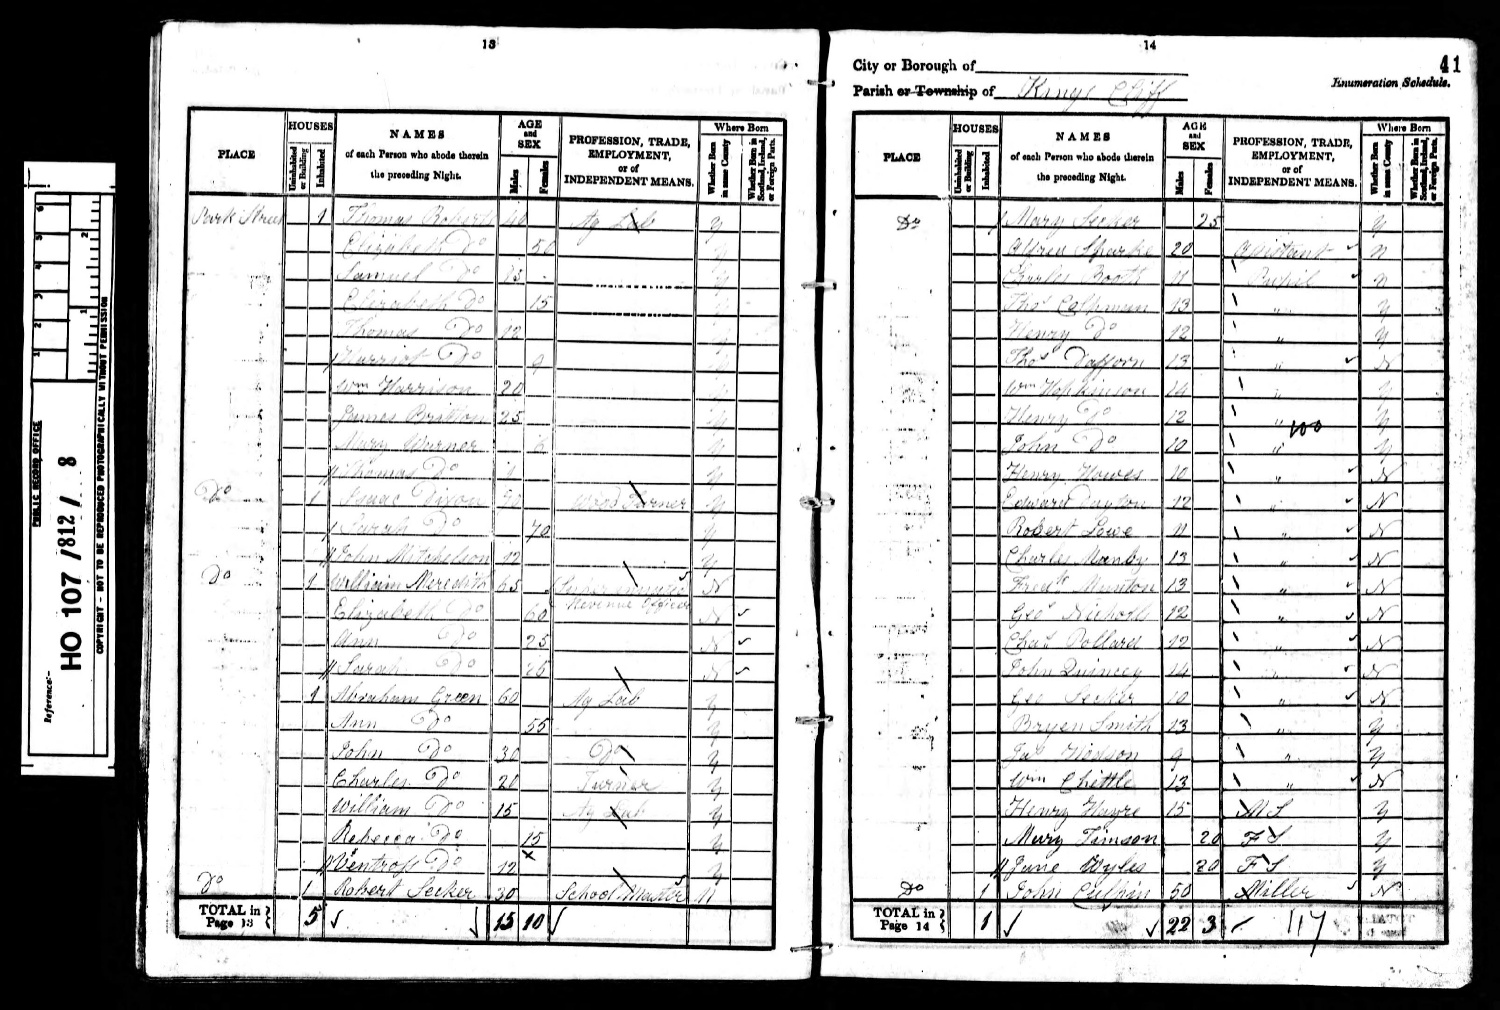 13
PLACE
HOUSES
Uninhabited or Building
Inhabited
NAMES
of each Person who abode therein
the preceding Night.
AGE
and
SEX
Males
Females
PROFESSION, TRADE,
EMPLOYMENT,
or of
INDEPENDENT MEANS.
Where Born
Whether Born in same County
Whether Born in Scotland, Ireland, or Foreign Parts.
Park Street 1 Thomas Roberts 40 Ag Lab y
Elizabeth Do 50 y
Samuel Do 15 y
Elizabeth Do 15 y
Thomas Do 12 y
Harriot Do 9 y
Wm Harrison 20 y
James Britton 25 y
Mary Warner y
Thomas Do 1 y
Do 1 Isaac Dixon Wood Turner y
Sarah Do 70 y
John Mitchelson 12 y
Do 1 William Meredith 65 N
Revenue Officer
Elizabeth Do 60 N
Ann Do 25 N
Sarah Do 25 N
1 Abraham Green 60 Ag Lab y
Ann Do 55 y
John Do 30 Do y
Charles Do 20 Turner y
William Do 15 Ag Lab y
Rebecca Do 15 y
Ventross Do 12 y
Do 1 Robert Seeker 30 School Master N
TOTAL in Page 13 5 15 10
14
41
City or Borough of
Enumeration Schedule.
Parish or Township of Kings Cliff
PLACE
HOUSES
Uninhabited or Building
Inhabited
NAMES
of each Person who abode therein
the preceding Night.
AGE
and
SEX
Males
Females
PROFESSION, TRADE,
EMPLOYMENT,
or of
INDEPENDENT MEANS.
Where Born
Whether Born in same County
Whether Born in Scotland, Ireland, or Foreign Parts.
Do Mary Seeker 25 y
Alfred Sharke 20 Assistant n
Charles Booth 11 Pupil n
Thos 13 " y
Henry Do 12 " y
Thos Dafforn 13 " N
Wm Hopkinson 14 " y
Henry Do 12 " y
100
John Do 10 " y
Henry Howes 10 " N
Edward Dayton 12 " N
Robert Lowe 11 " N
Charles Manby 13 " N
Fredk Munton 13 " N
Geo Nicholls 12 " N
Chas Pollard 12 " N
John Quincey 14 " N
Geo Seeker 10 " N
Bryen Smith 13 " y
Jas Hodson 9 " y
Wm Chettle 13 " N
Henry Hayre 15 M S y
Mary Timson 20 F S y
Jane Wyles 20 F S y
Do 1 John Culpin 50 Miller N
TOTAL in Page 14 1 22 3 117
PUBLIC RECORD OFFICE
Reference:-
HO 107 / 812 / 8
COPYRIGHT - NOT TO BE REPRODUCED PHOTOGRAPHICALLY WITHOUT PERMISSION
1 2 3 4 5 6
1 2